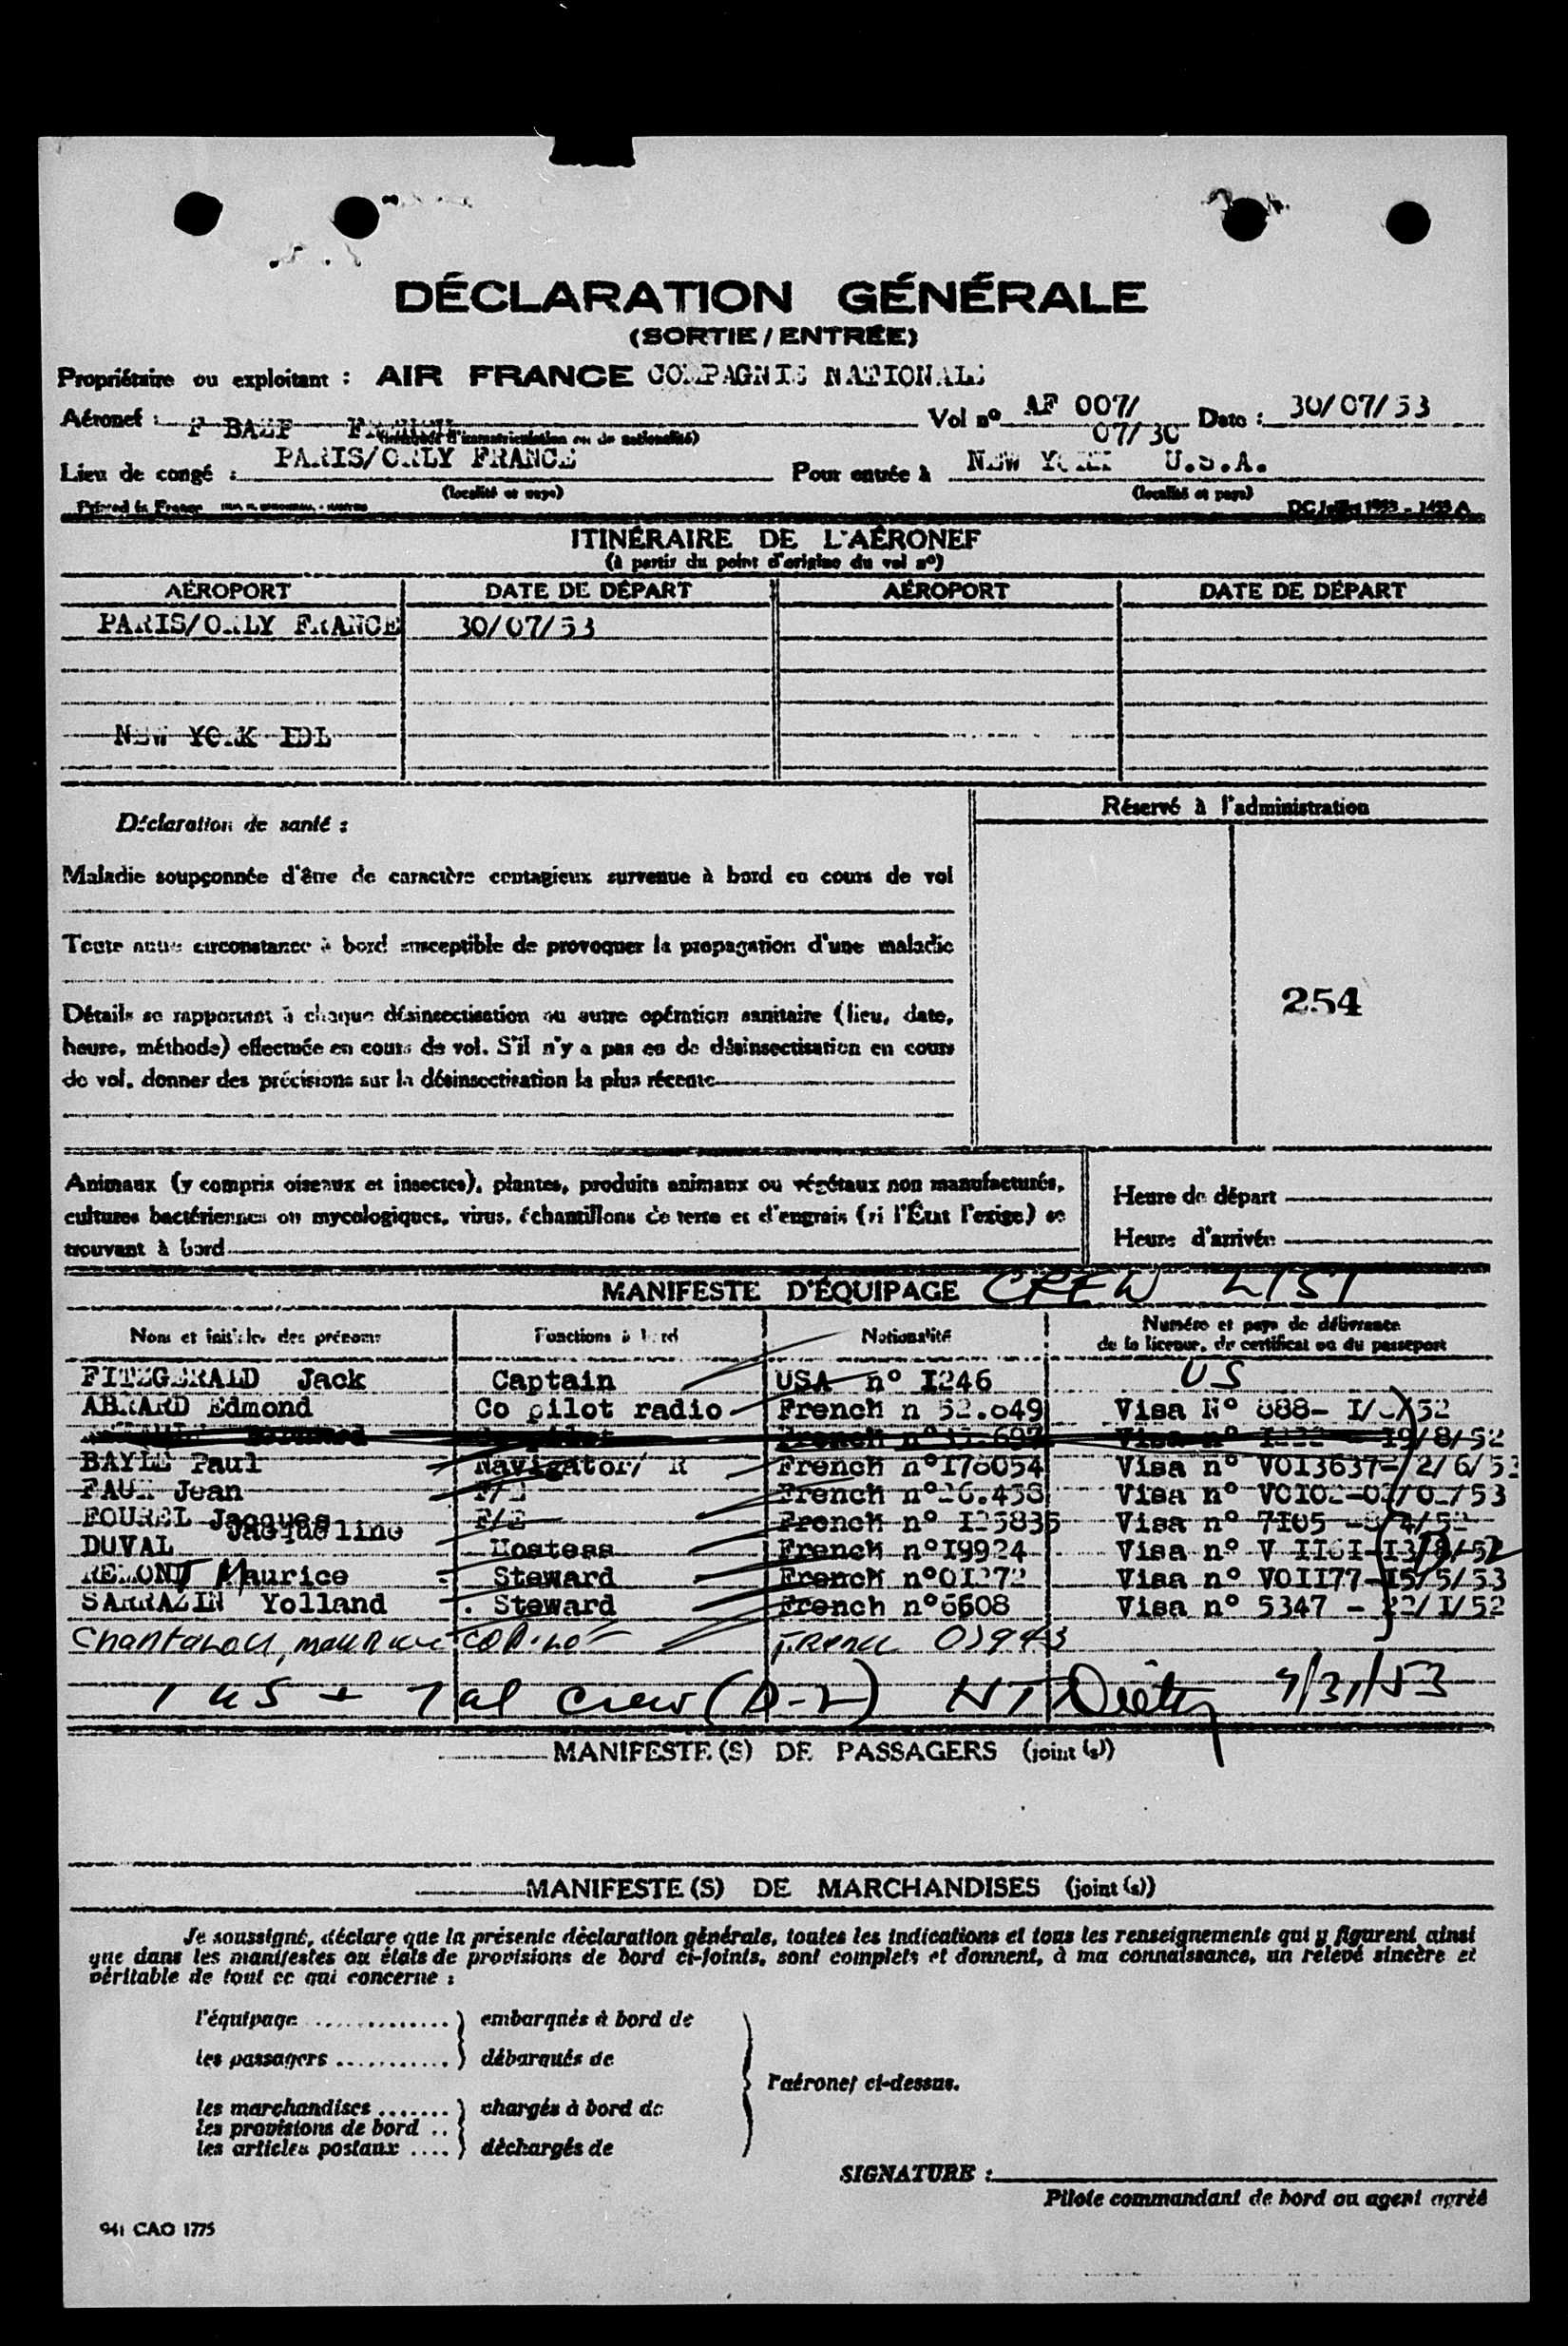 DÉCLARATION GÉNÉRALE
(SORTIE / ENTRÉE)
Propriétaire ou exploitant : AIR FRANCE COMPAGNIE NATIONALE
Aéronef : F BAZP FRENCH Vol nº AF 007/ 07/30 Date : 30/07/53
Lieu de congé : PARIS/ORLY FRANCE Pour entrée à NEW YORK U.S.A.
(localité et pays) (localité et pays)
Printed in France
ITINÉRAIRE DE L'AÉRONEF
(à partir du point d'origine du vol nº)
AÉROPORT DATE DE DÉPART AÉROPORT DATE DE DÉPART
PARIS/ORLY FRANCE 30/07/53
NEW YORK IDL
Déclaration de santé :
Réservé à l'administration
Maladie soupçonnée d'être de caractère contagieux survenue à bord en cours de vol
Toute autre circonstance à bord susceptible de provoquer la propagation d'une maladie
254
Détails se rapportant à chaque désinsectisation ou autre opération sanitaire (lieu, date,
heure, méthode) effectuée en cours de vol. S'il n'y a pas eu de désinsectisation en cours
de vol, donner des précisions sur la désinsectisation la plus récente
Animaux (y compris oiseaux et insectes), plantes, produits animaux ou végétaux non manufacturés,
cultures bactériennes ou mycologiques, virus, échantillons de terre et d'engrais (si l'État l'exige) se
trouvant à bord
Heure de départ
Heure d'arrivée
MANIFESTE D'ÉQUIPAGE CREW LIST
Nom et initiales des prénoms Fonctions à bord Nationalité Numéro et pays de délivrance
de la licence, du certificat ou du passeport
FITZGERALD Jack Captain USA nº I246 US
ABRARD Edmond Co pilot radio French n 52.849 Visa Nº 888- I/ /52
French nº Visa nº I222 - 19/8/52
BAYLE Paul Navigator/ R French nºI78054 Visa nº VOI3637- 2/6/53
FAUR Jean F/E French nº26.438 Visa nº /53
FOUREL Jacques F/E French nº I25835 Visa nº 7I05
DUVAL Jacqueline Hostess French nºI9924 Visa nº V II6I-I3/8/52
REMONT Maurice Steward French nºOI272 Visa nº VOII77-I5/5/53
SARRAZIN Yolland Steward French nº6608 Visa nº 5347 - 22/I/52
Maurice French
1 US + 7 al crew (D-2) 7/31/53
MANIFESTE (S) DE PASSAGERS (joint (s))
MANIFESTE (S) DE MARCHANDISES (joint (s))
Je soussigné, déclare que la présente déclaration générale, toutes les indications et tous les renseignements qui y figurent ainsi
que dans les manifestes ou états de provisions de bord ci-joints, sont complets et donnent, à ma connaissance, un relevé sincère et
véritable de tout ce qui concerne :
l'équipage .............. } embarqués à bord de
les passagers ........... } débarqués de
l'aéronef ci-dessus.
les marchandises ....... } chargés à bord de
les provisions de bord ..
les articles postaux .... } déchargés de
SIGNATURE :
Pilote commandant de bord ou agent agréé
941 CAO 1775